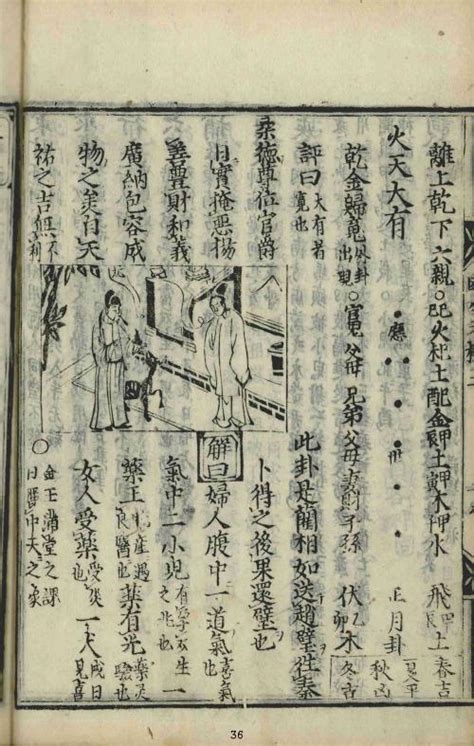 離上乾下六親○巳火 土 金 土 木 水 飛 土 春吉
火天大有 應 世 正月卦 夏 秋凶
乾金歸魂外卦出現○官鬼父母兄弟父母妻財子孫 伏乙卯木 冬吉
評曰大有者寬也
柔德尊位官爵
日實掩惡揚
善豐財和義
廣納包容成
物之美自天
祐之吉無不利
此卦是藺相如送趙璧往秦
卜得之後果還璧也
解曰婦人腹中一道氣喜氣也
氣中二小兒有孕 生一 之兆也
藥王 產遇良醫也藥有光藥災驗也
女人受藥受災也一犬戌日見喜
○金玉滿堂之課
日麗中天之象
36